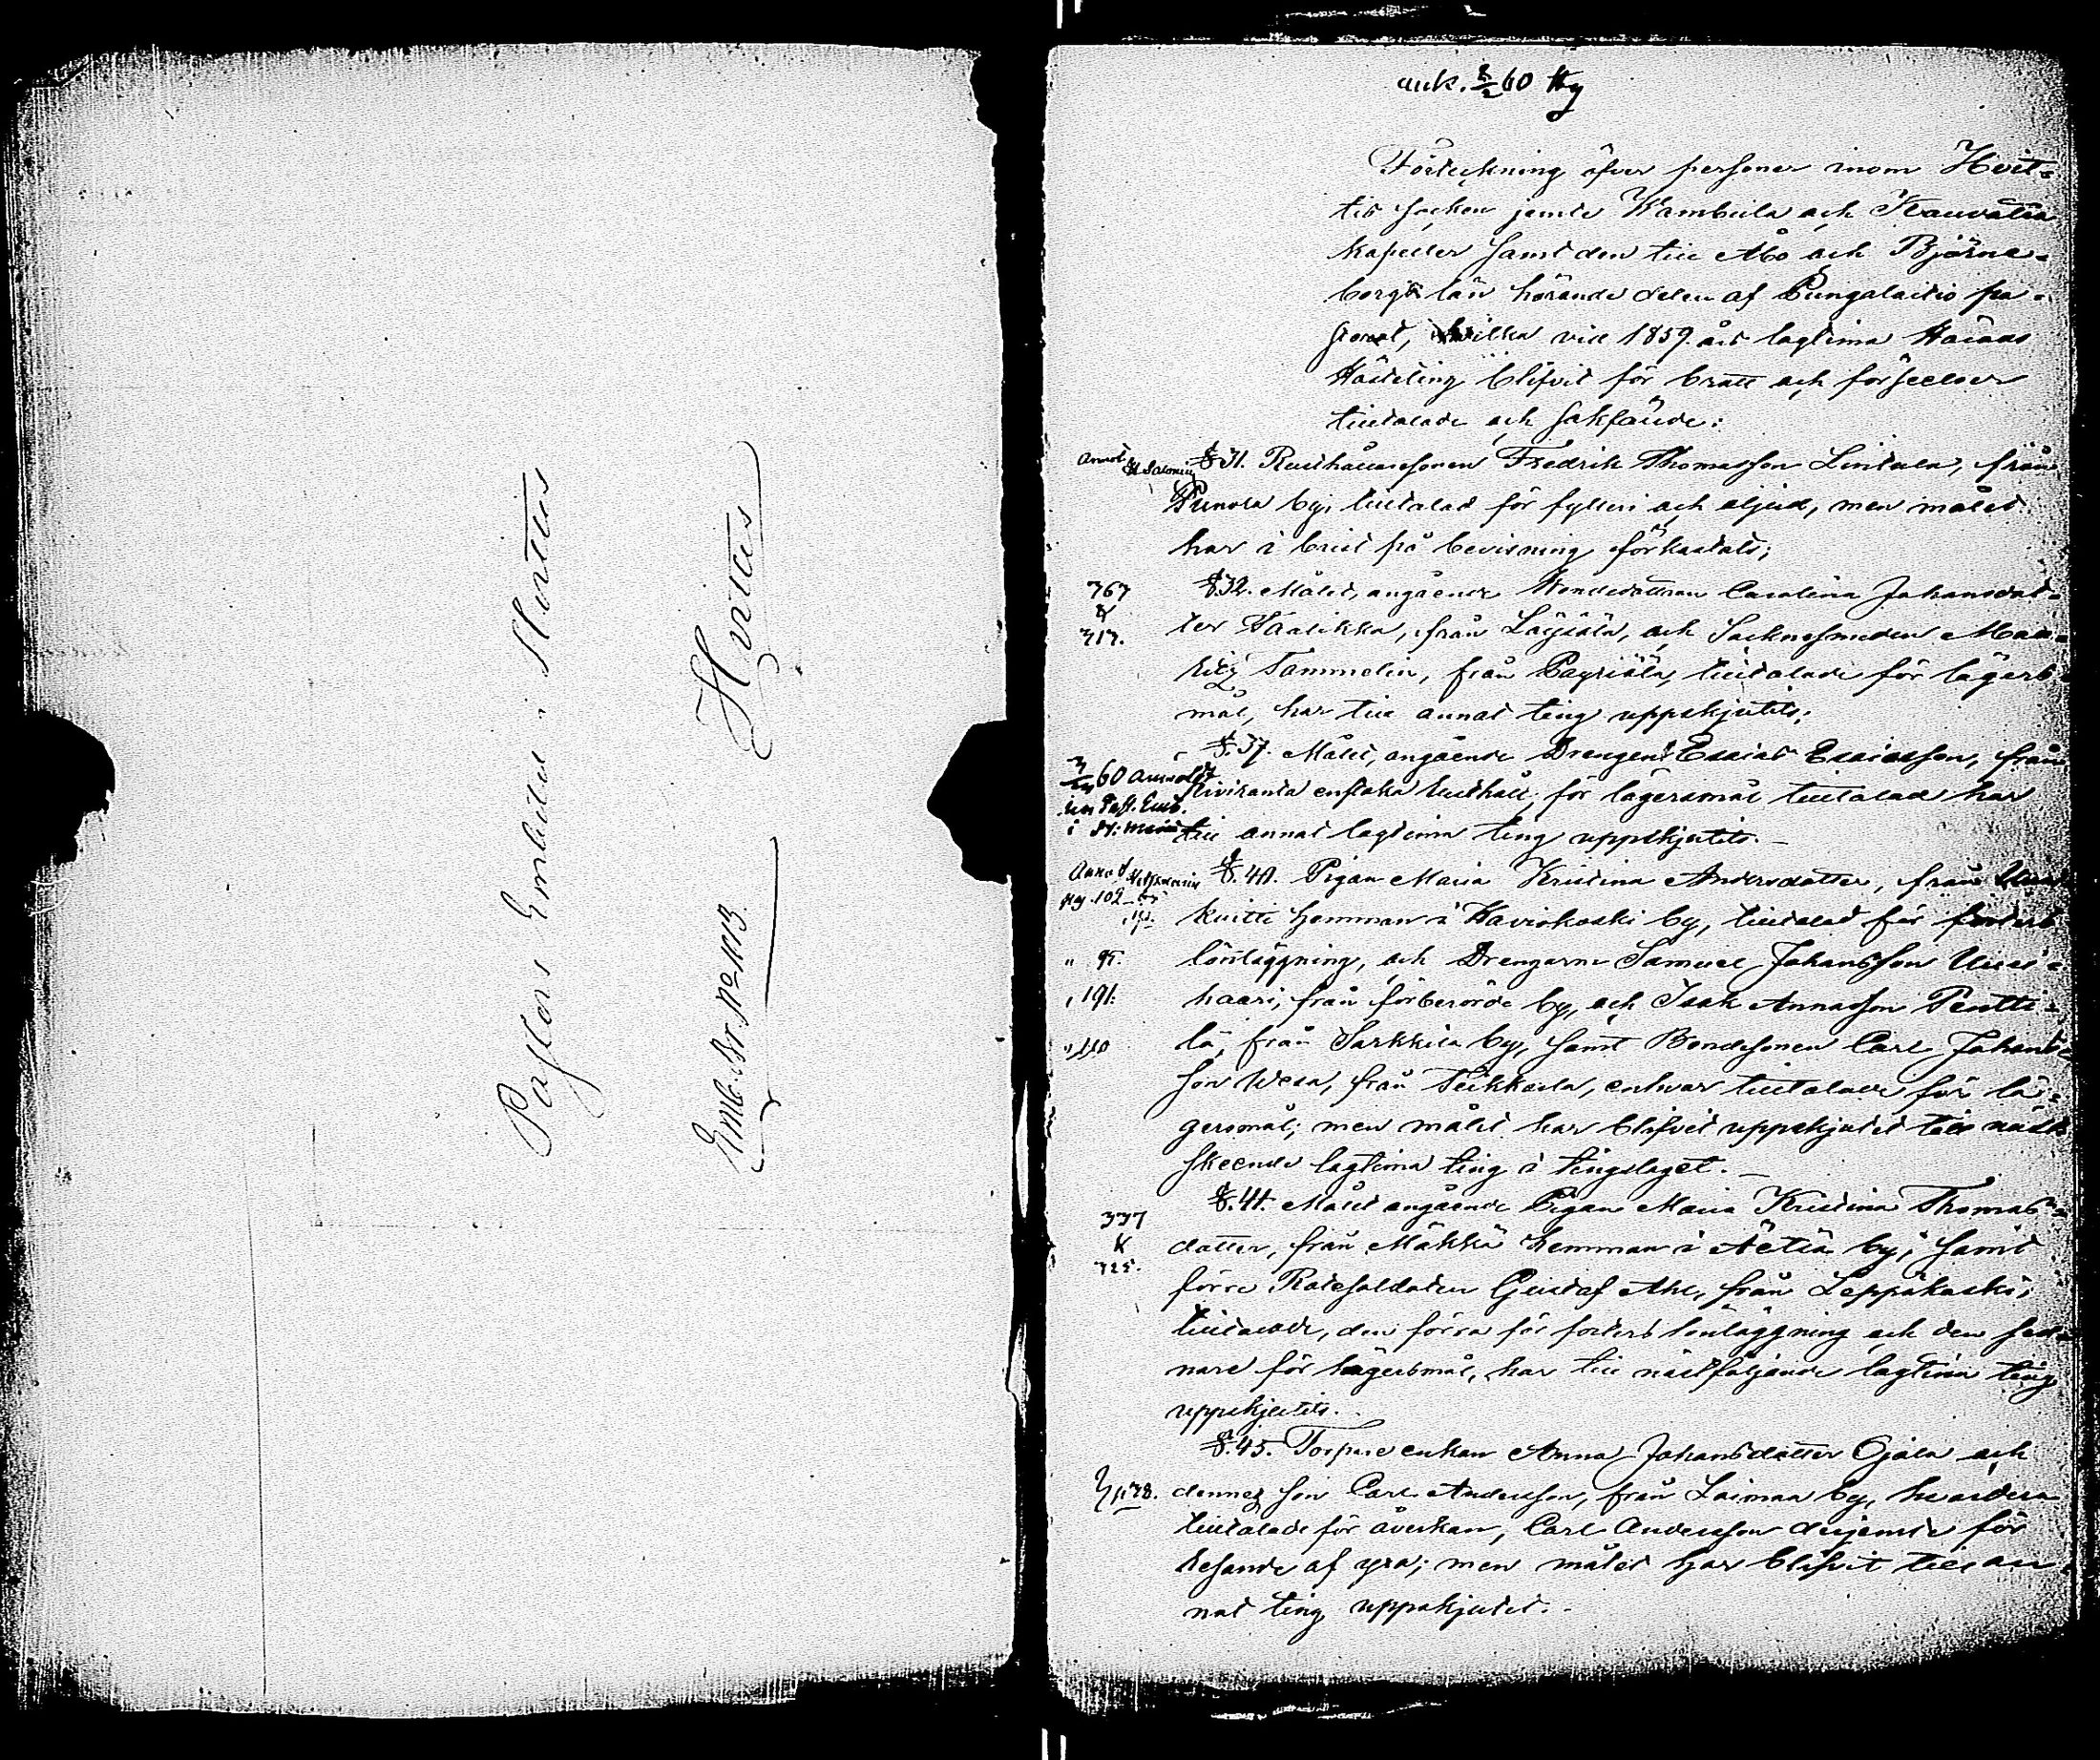 Pastors Embetet i Hvittis
Hvittis
Emb. Br. No 1113.
ank. 8/2 60 Hg
Förteckning öfver personer inom Hvit-
tis socken jemte Wambula och Kauvatsa
kapeller samt den till Åbo och Björne-
borgs län hörande delen af Pungalaitio pa-
gerat, hvilka vid 1859 års lagtima
Höstting blifvit för brott och förseelser
tilltalade och sakfäude:
Annot
§ 31. Rusthållaresonen Fredrik Thomasson Lintula, från
Punola by, tilltalad för fylleri och oljud, men målet
har i brist på bevisning förkastats;
367
&
317.
§ 32. Målet, angående Bondedottren Carolina Johansdot-
ter Saalikka, från och Socknesmeden Mau-
ritz Tammelin, från tilltalade för lägers-
mål, har till annat ting uppskjutits;
§. 37. Målet, angående Drengen Esaias Esaiasson, från
3/60 Annot
enstaka rusthåll, för lägersmål tilltalad har
till annat lagtima ting uppskjutits.
Annot
pag. 102
§. 40. Pigan Maria Kristina Andersdotter, från
kuitti hemman i Kaviokoski by, tilltalad för fosters
" 95.
lönnläggning, och Drengarne Samuel Johansson Uusi-
" 191.
haari, från förberörde by, och Isak Annasson Pentti-
" 110
lä, från Sarkkila by, samt Bondesonen Carl Johans-
son Wesa, från enhvar tilltalade för lä-
gersmål; men målet har blifvit uppskjutet till näst-
skeende lagtima ting i tingslaget.
337
&
325.
§. 41. Målet angående Pigan Maria Kristina Thomas-
dotter, från Mäkkä hemman i Äetsä by, samt
förre Rotesoldaten Gustaf Ahl, från Leppäkoski;
tilltalade, den förra för fosters lönläggning och den sed-
nare för lägersmål, har till nästföljande lagtima ting
uppskjutits.
§. 45. Torpare enkan Anna Johansdotter Ojala och
78.
dennes son Carl Andersson, från Loima by, hvardera
tilltalade för åverkan, Carl Andersson derjemte för
af yxa; men målet har blifvit till an-
nat ting uppskjutet.